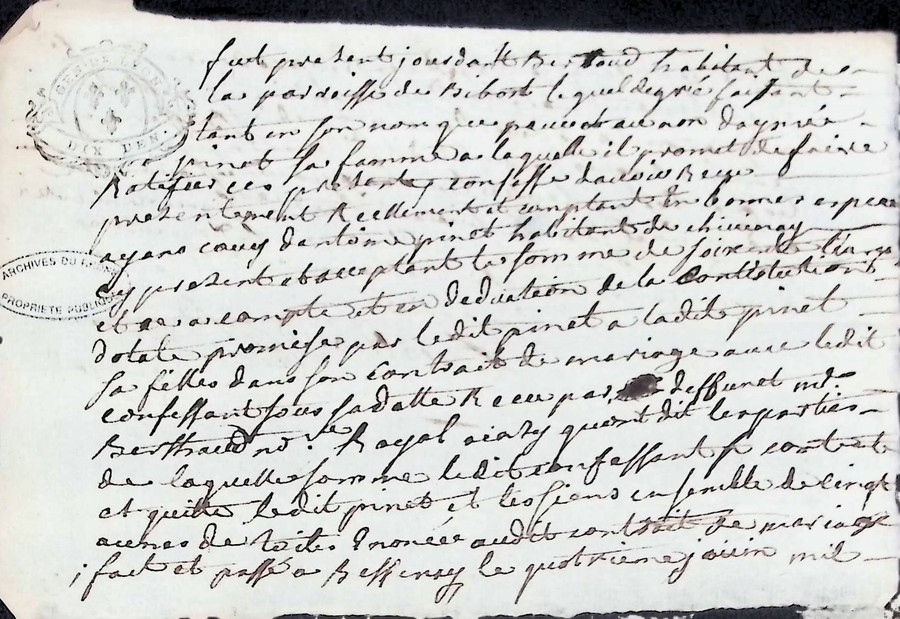 GEN. DE LYON
DIX DEN.
fut present jourdant Berthoud habitant de
la parroisse de Bibost lequel de gré faisant
tant en son nom que peauct au non daymée
pinet sa famme a laquelle il promet de faire
Ratifier ces presantes confesse davoir Receu
presentement Reellement et comptant en bonnes espece
ayans cours dantoine pinet habitant de chivinay
cy present et acceptant la somme de soixante livres
et ce a compte et en deduction de la Contistution
dotale promise par ledit pinet a ladit pinet
sa filles dans son contrait de mariage avec ledit
confessant sous sa datte Receu par deffunct me.
Berthaud no.re Royal aiasy quont dit les parties
de laquelle somme ledit confessant se contente
et quitte ledit pinet et les siens ensemble de cinq
aunes de toiles Enoncée audit contrait de mariage
fait et passé a Bessenay le quatrieme jouin mil
ARCHIVES DU
PROPRIETE PUBLIQUE